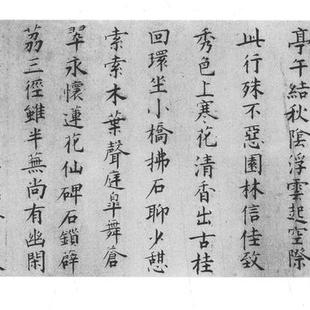 亭午結秋陰浮雲起空際
此行殊不惡園林信佳致
秀色上寒花清香出古桂
回環坐小橋拂石聊少憩
索索木葉聲庭皋舞倉
翠永懷蓮花仙碑石鎖薜
荔三徑雖半無尚有幽閑